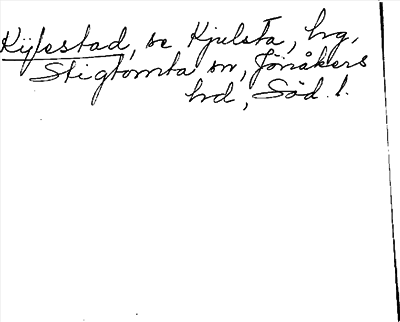 Kÿlestad, se Kjulsta, hrg,
Stigtomta sn, Jönåkers
hd, Söd. l.